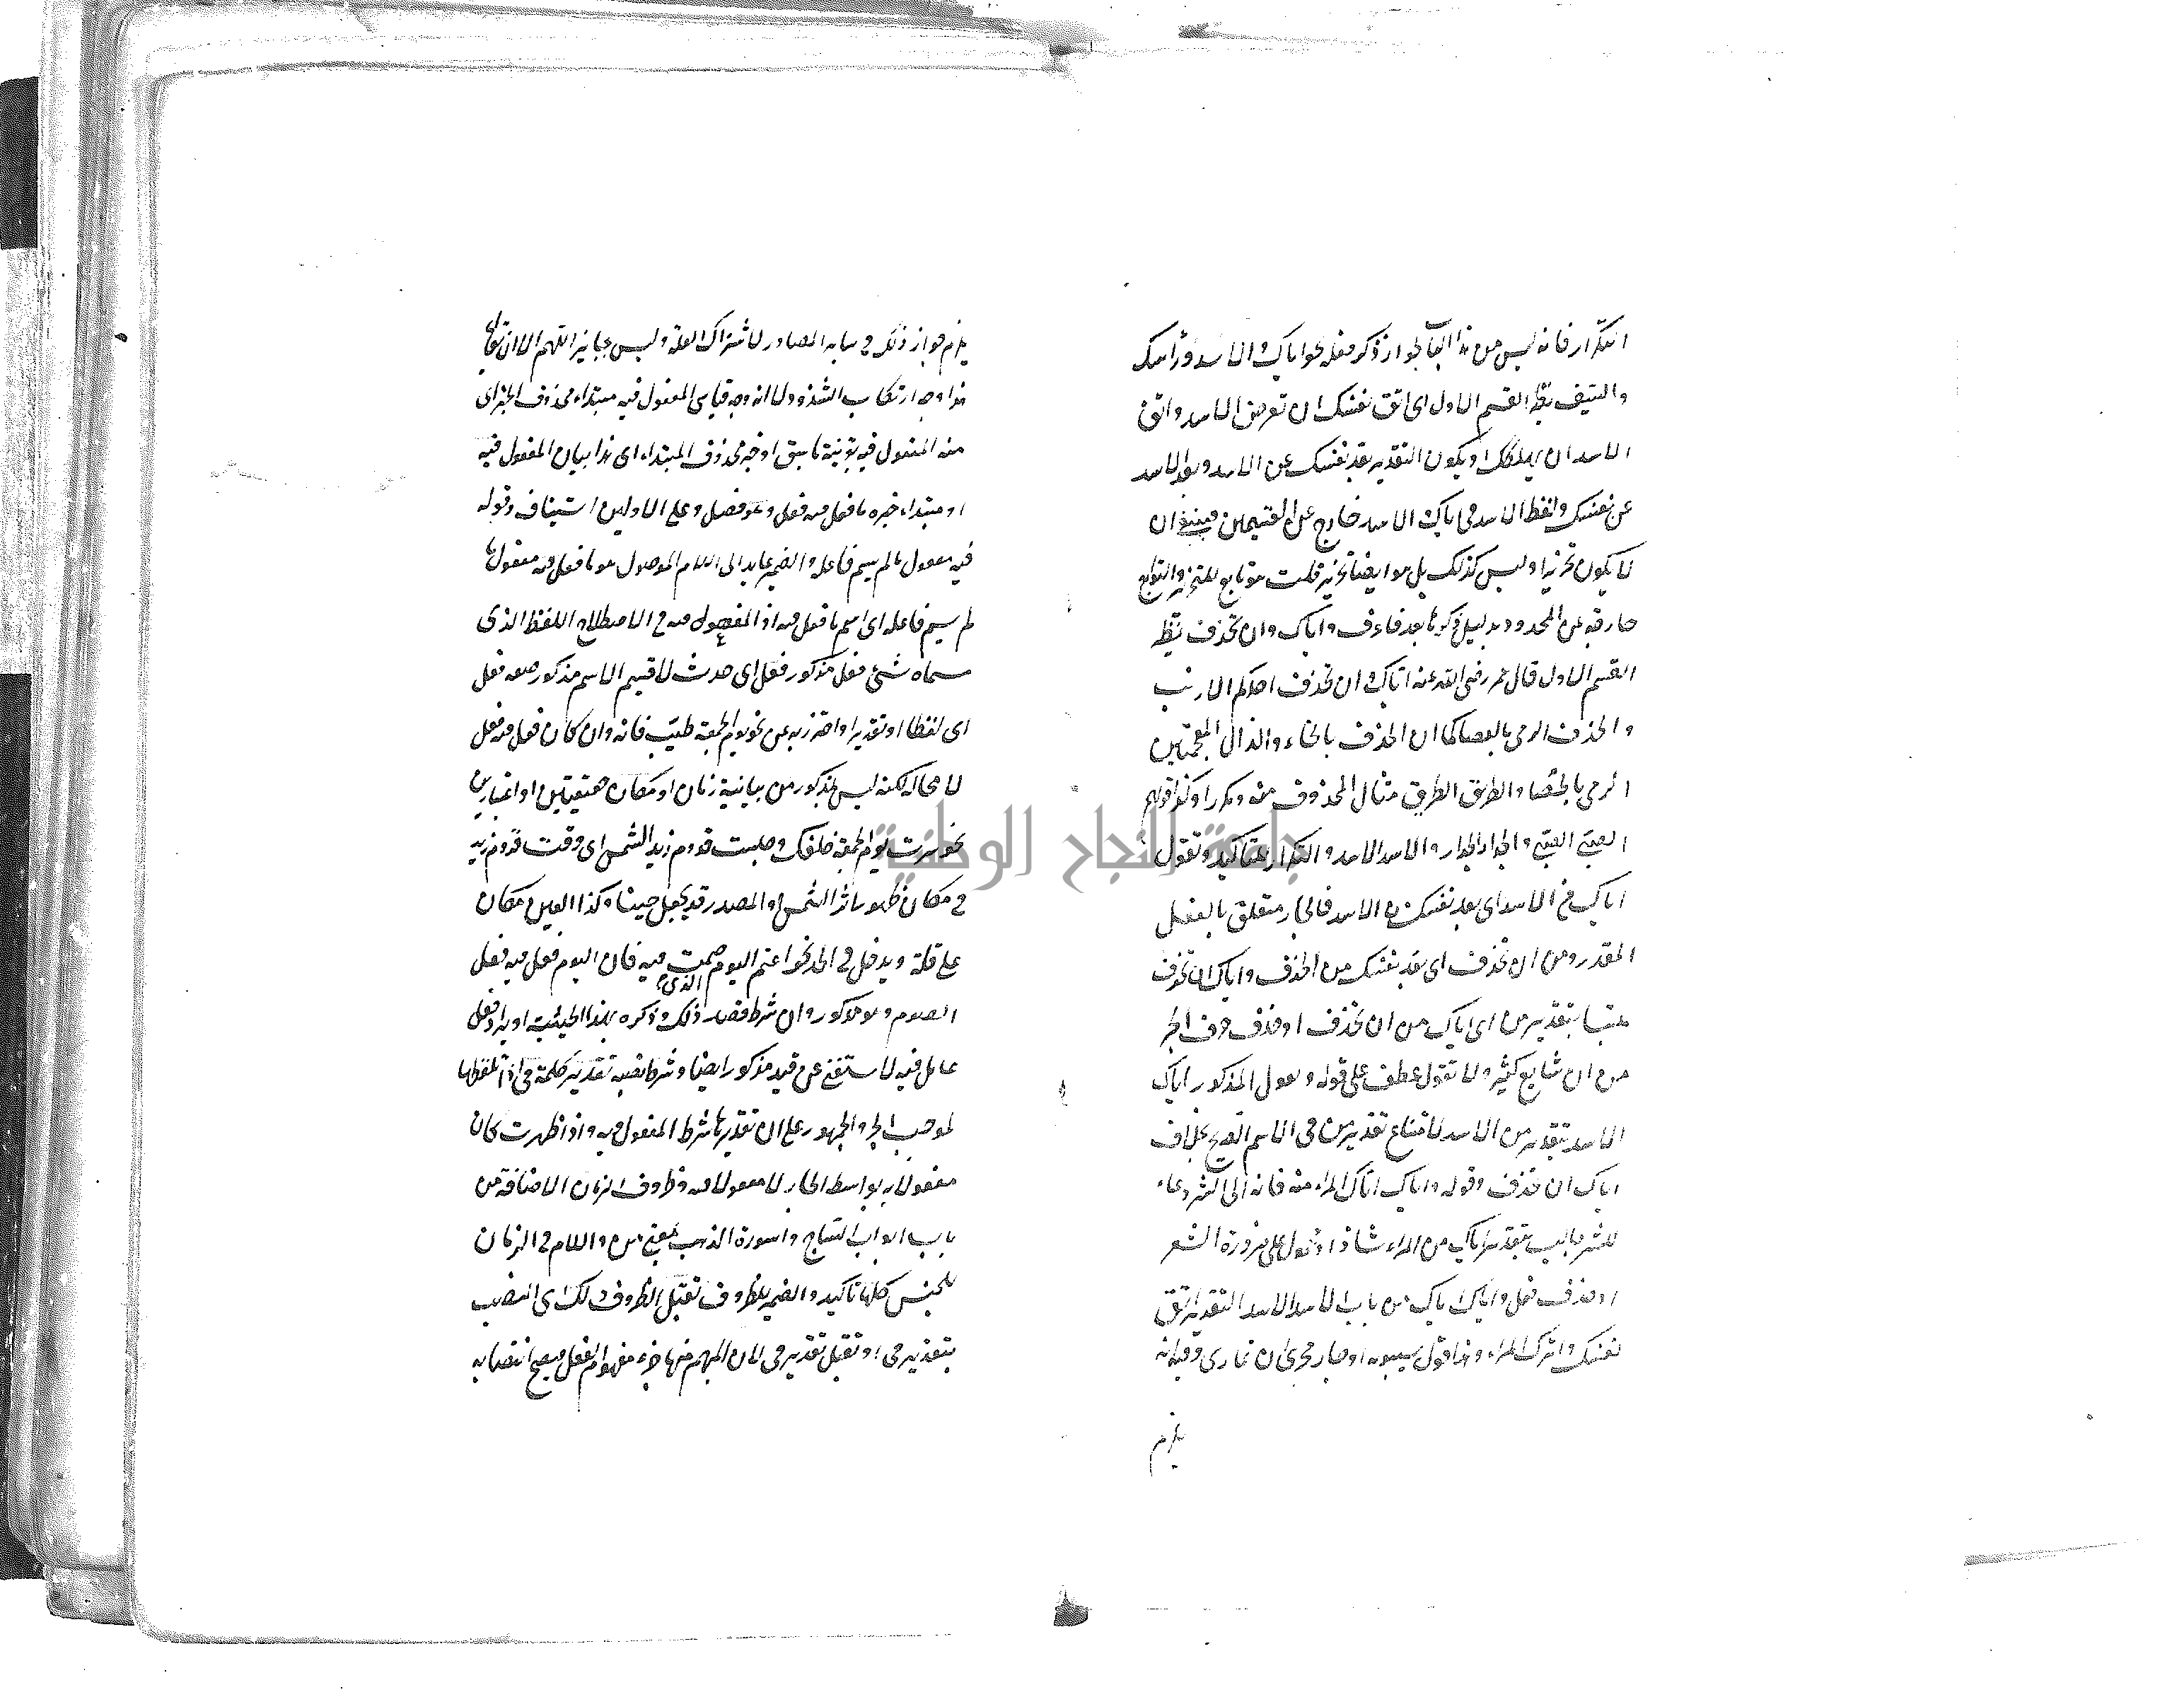 التكرار فانه ليس من هذا الباب لجواز ذكر فعله نحو اياك والاسد وراسك
والسيف نظير القسم الاول اى اتق نفسك ان تعرض الاسد واتق
الاسد ان يهلكك او يكون التقدير بعد نفسك عن الاسد وبعد الاسد
عن نفسك ولفظ الاسد فى اياك والاسد خارج عن القسمين فينبغى ان
لا يكون تحذيرا وليس كذلك بل هو ايضا تحذير قلت هو تابع للتحذير والتوابع
خارجة عن المحدود بدليل ذكرها بعد فاعرف واياك وان تحذف نظير
القسم الاول قال عمر رضى الله عنه اياك وان تحذف احدكم الارنب
والحذف الرمى بالعصا كما ان الخذف بالخاء والذال المعجمتين
الرمى بالحصا والطريق الطريق مثال المحذوف منه مكررا وكذا قولهم
الصبى الصبى والجدار الجدار والاسد الاسد والتكرار للتاكيد وتقول
اياك من الاسد اى بعد نفسك من الاسد فالجار متعلق بالفعل
المقدر ومن ان تحذف اى بعد نفسك من الحذف واياك ان تحذف
بتقدير من اى اياك من ان تحذف اذ حذف حرف الجر
من ان شايع كثير ولا تقول عطف على قوله وتقول المذكور اياك
الاسد بتقدير من الاسد لامتناع تقدير من فى الاسم الصريح بخلاف
اياك ان تحذف وقوله واياك اياك المراء فانه الى الشر دعاء
وللشر جالب بتقدير اياك من المراء شاذ او محمول على ضرورة الشعر
او حذف فعل واياك اياك من باب الاسد الاسد التقدير اتق
نفسك واترك المراء وهذا قول سيبويه او جار مجرى ان تمارى وفيه انه
يلزم
يلزم جواز ذلك فى سائر المصادر لاشتراك العلة وليس بجايز اللهم الا ان يقال
هذا وجه ارتكاب الشذوذ لا انه وجه قياسى المفعول فيه مبتداء محذوف الخبر اى
منه المفعول فيه بقرينة ما سبق او خبر محذوف المبتداء اى هذا بيان المفعول فيه
او مبتداء خبره ما فعل فيه فعل وهو فصل وعلى الاولين استيناف وقوله
فيه مفعول ما لم يسم فاعله والضمير عايد الى اللام الموصول هو ما فعل فيه مفعول ما
لم يسم فاعله اى اسم ما فعل فيه اذ المفعول فيه فى الاصطلاح اللفظ الذى
مسماه شئ فعل مذكور فعل اى حدث لا قسيم الاسم مذكور صفة فعل
اى لفظا او تقديرا واحترز به عن نحو يوم الجمعة طيب فانه وان كان فعل فيه فعل
لا محالة لكنه ليس بمذكور من بيانية زمان او مكان حقيقيين او اعتباريين
نحو سرت يوم الجمعة خلفك وجلست قدوم زيد الشمس اى وقت قدوم زيد
فى مكان ظهور اثر الشمس والمصدر قد يجعل حينا وكذا العين مكان
على قلة ويدخل فى الحد نحو اعتم اليوم الذى صمت فيه فان اليوم فعل فيه فعل
الصوم وهو مذكور وان شرط قصد ذلك وذكره بهذا الحيثية او يراد فعل
عامل فيه لاستغنى عن قيد مذكور ايضا وشرط نصبه تقدير كلمة فى اذ تلفظها
لموجب الجر والجمهور على ان تقديرها شرط المفعول فيه واذا ظهرت كان
مفعولا به بواسطة الجار لا مفعولا فيه وظروف الزمان الاضافة من
باب ابواب الساج واسورة الذهب بمعنى من واللام فى الزمان
للجنس كلها تاكيد والضمير للظروف تقبل الظروف ذلك اى النصب
بتقدير فى او تقبل تقدير فى لان المبهم منها جزء مفهوم الفعل فيصح انتصابه
جامعة النجاح الوطنية